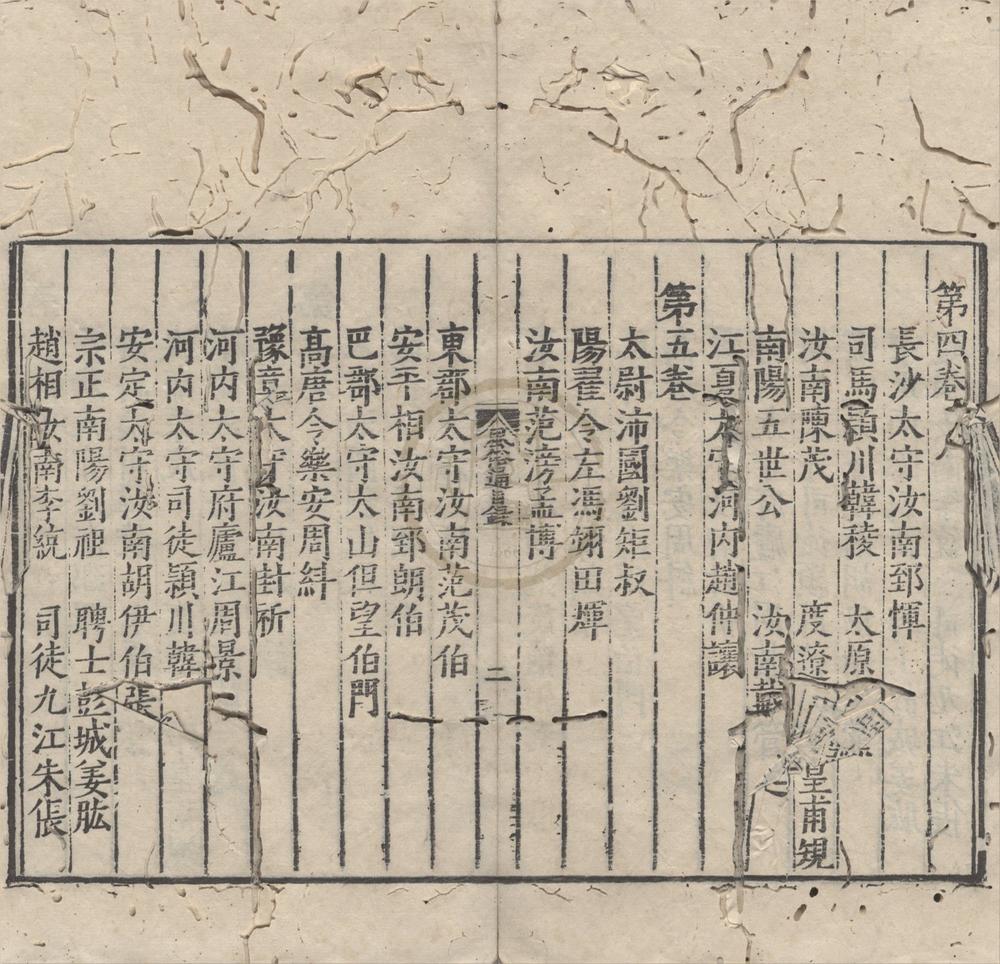 第四卷
長沙太守汝南郅惲
司馬潁川韓稜　太原周
汝南陳茂　度遼皇甫規
南陽五世公　汝南戴
江夏太守河內趙仲讓
第五卷
太尉沛國劉矩叔
陽翟令左馮翊田煇
汝南范滂孟博
風俗通目錄　二
東郡太守汝南范茂伯
安平相汝南郅朗伯
巴郡太守太山但望伯門
高唐令樂安周糾
豫章太守汝南封祈
河內太守府廬江周景
河內太守司徒潁川韓
安定太守汝南胡伊伯張
宗正南陽劉祖　聘士彭城姜肱
趙相汝南李統　司徒九江朱倀